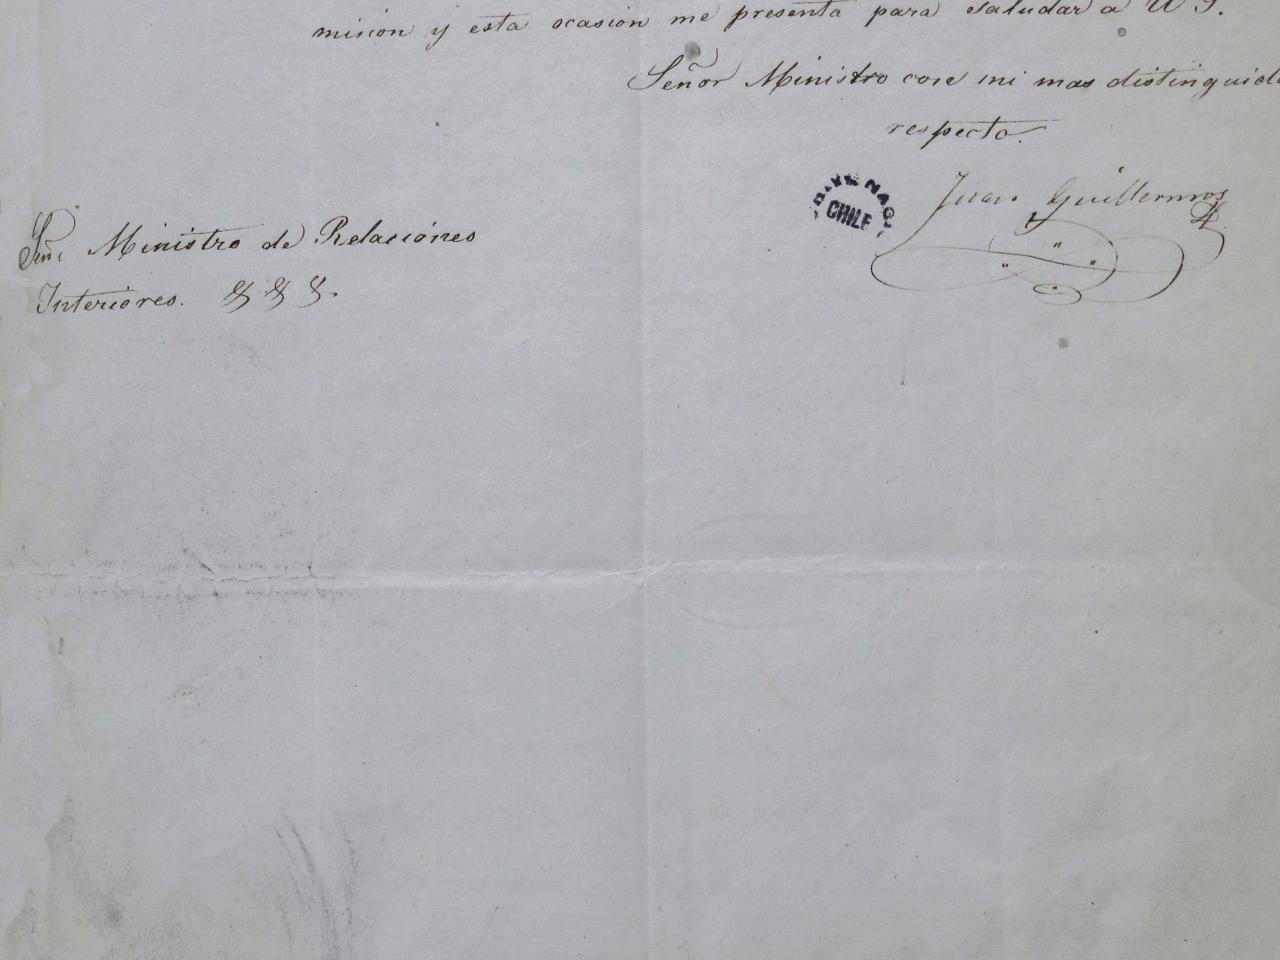 mision y esta ocasion me presenta para saludar a U S.
Señor Ministro con mi mas distinguido
respecto.
Juan Guillermos
CHILE
Señr Ministro de Relaciones
Interiores. & & &.